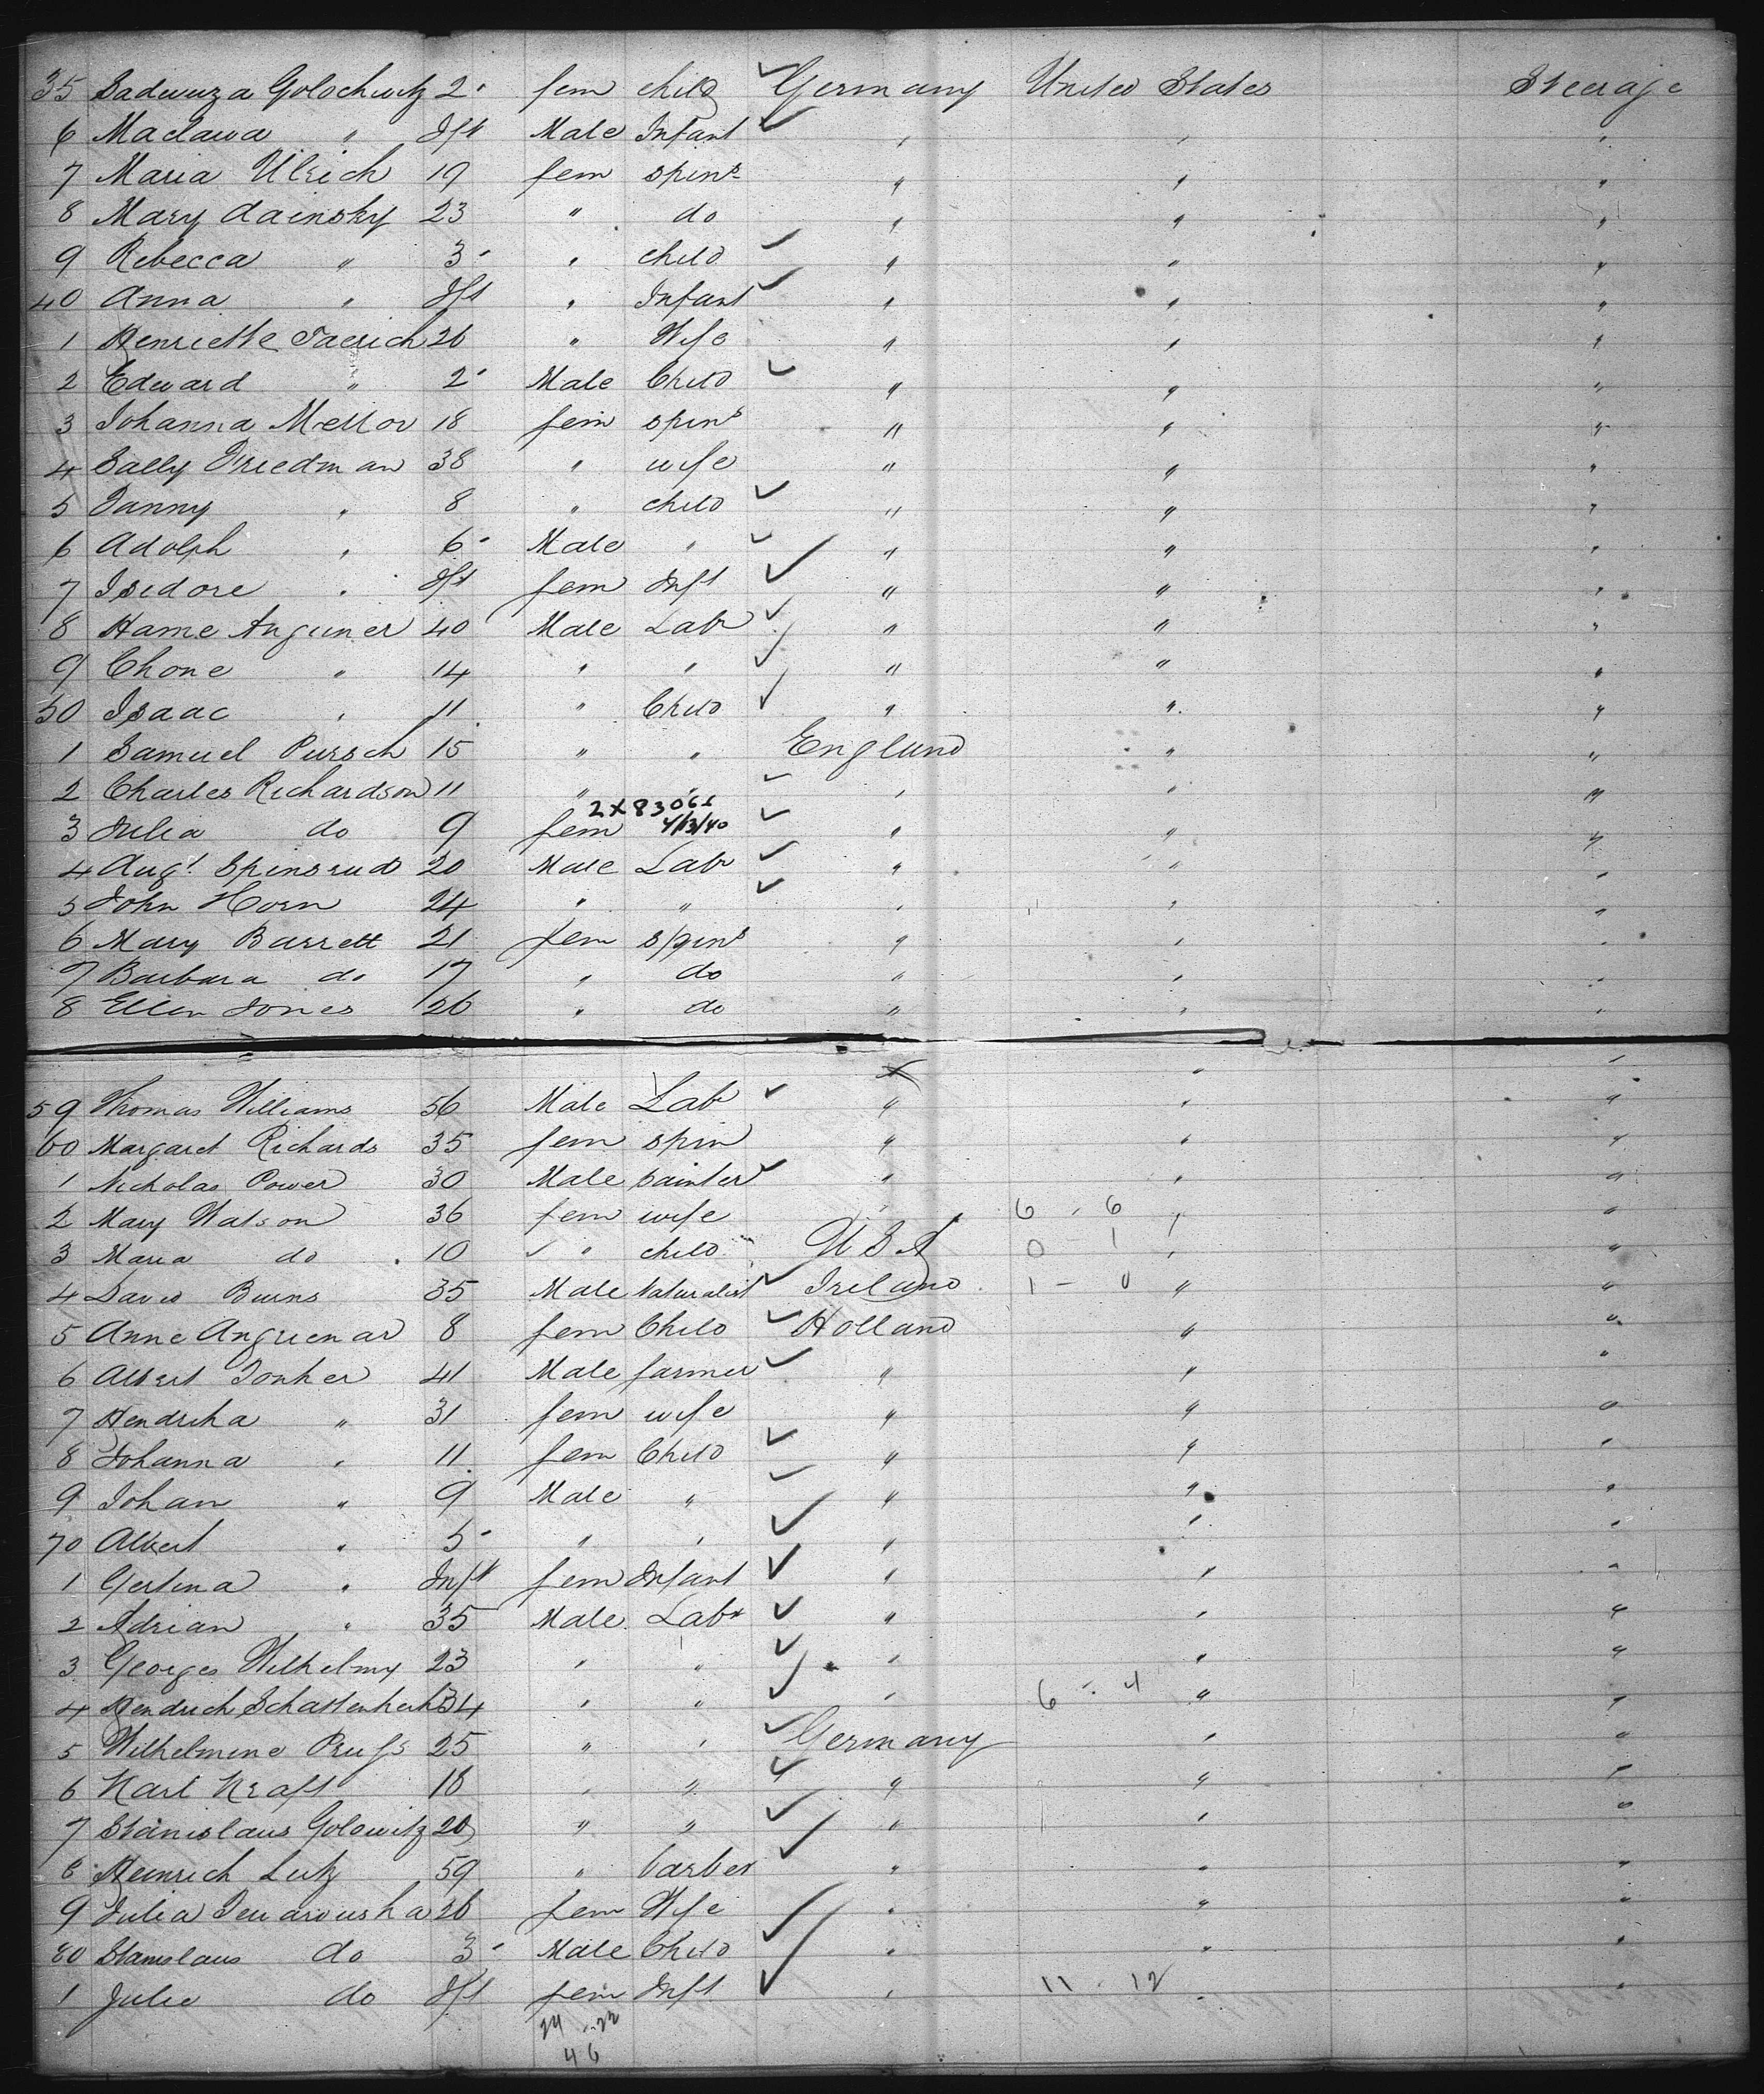 35 Sadwuza Golochwitz 2 fem child Germany United States Steerage
6 Maclawa " Ift Male Infant " " "
7 Maria Ulrich 19 fem spins " " "
8 Mary Aainsky 23 " do " " "
9 Rebecca " 3 " child " " "
40 Anna " Ift " Infant " " "
1 Henriette Taerich 26 " Wife " " "
2 Edward " 2 Male Child " " "
3 Johanna Mellor 18 fem spins " " "
4 Sally Friedman 38 " wife " " "
5 Fanny " 8 " child " " "
6 Adolph " 6 Male " " " "
7 Isidore " Ift fem Inft " " "
8 Hame Anguner 40 Male Lab " " "
9 Chone " 14 " " " " "
50 Isaac " 11 " Child " " "
1 Samuel Pursch 15 " " England " "
2 Charles Richardson 11 " " " " "
2X8306
4/13/40
3 Julia do 9 fem " " "
4 Augt. Spinsrud 20 Male Lab " " "
5 John Horn 24 " " " " "
6 Mary Barrett 21 fem spins " " "
7 Barbara do 17 " do " " "
8 Ellen Jones 26 " do " " "
59 Thomas Williams 56 Male Lab " " "
60 Margaret Richards 35 fem spin " " "
1 Nicholas Power 30 Male painter " " "
2 Mary Watson 36 fem wife " 6 - 6 " "
3 Maria do 10 " child USA 0 - 1 " "
4 David Burns 35 Male Naturalist Ireland 1 - 0 " "
5 Anne Angrienar 8 fem Child Holland " "
6 Albert Jonker 41 Male farmer " " "
7 Hendrika " 31 fem wife " " "
8 Johanna " 11 fem Child " " "
9 Johan " 9 Male " " " "
70 Albert " 5 " " " " "
1 Gertina " Inft fem Infant " " "
2 Adrian " 35 Male Labr " " "
3 Georges Wilhelmy 23 " " " " "
4 Hendrich Schattenkerk 34 " " " 6 - 4 " "
5 Wilhelmine Prufs 25 " " Germany " "
6 Karl Kraft 18 " " " " "
7 Stanislaus Golowitz 20 " " " " "
8 Heinrich Lutz 59 " barber " " "
9 Julia 26 fem Wife " " "
80 Stanislaus do 3 Male Child " " "
1 Julie do Ift fem Inft " 11 - 12 " "
24 - 22
46